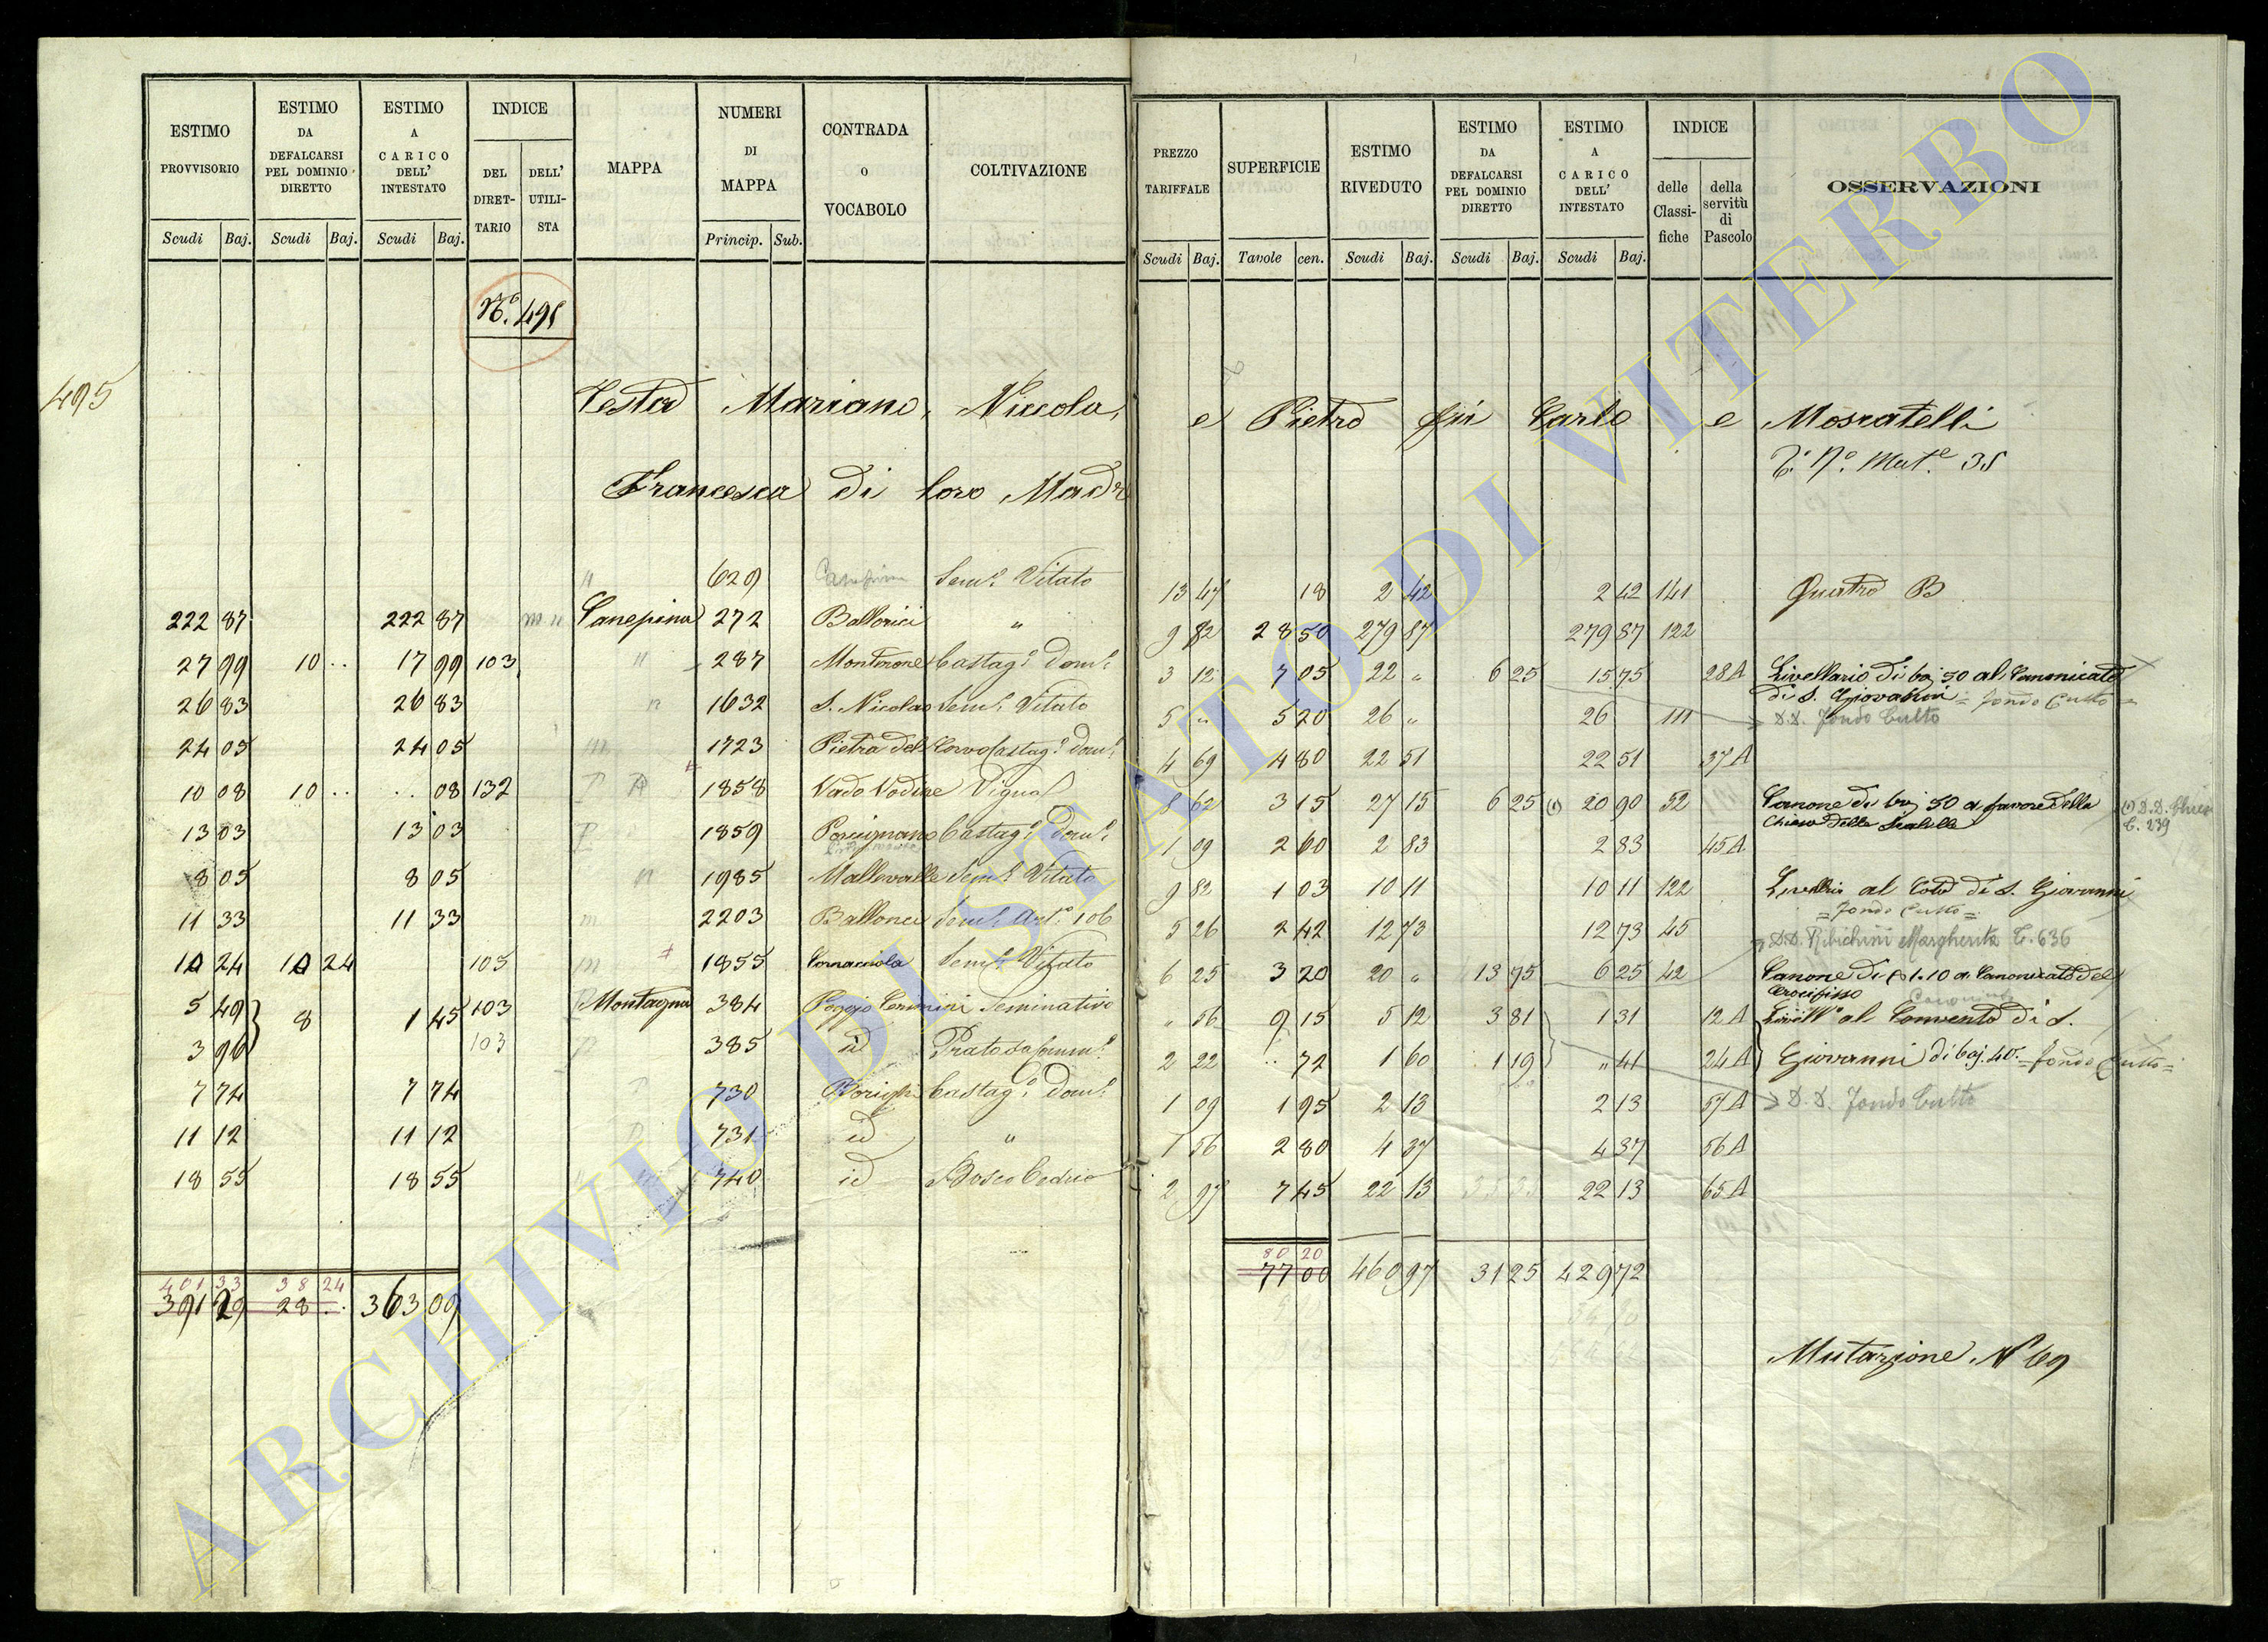 ESTIMO PROVVISORIO
Scudi Baj.
ESTIMO DA DEFALCARSI PEL DOMINIO DIRETTO
Scudi Baj.
ESTIMO A CARICO DELL' INTESTATO
Scudi Baj.
INDICE
DEL DIRETTARIO
DELL' UTILISTA
MAPPA
NUMERI DI MAPPA
Princip. Sub.
CONTRADA O VOCABOLO
COLTIVAZIONE
PREZZO TARIFFALE
Scudi Baj.
SUPERFICIE
Tavole cen.
ESTIMO RIVEDUTO
Scudi Baj.
ESTIMO DA DEFALCARSI PEL DOMINIO DIRETTO
Scudi Baj.
ESTIMO A CARICO DELL' INTESTATO
Scudi Baj.
INDICE
delle Classifiche
della servitù di Pascolo
OSSERVAZIONI
N.º 495
495
Testa Mariano, Niccola, e Pietro fu Carlo e Moscatelli
Francesca di loro Madr
629 Sem.º Vitato 13 47 18 2 42 2 42 141 Quadro B
222 87 222 87 Canepina 272 " 9 82 28 50 279 87 279 87 122
27 99 10 .. 17 99 103 " 287 Montorone Castag.º Dom.º 3 12 7 05 22 " 6 25 15 75 28A Livellario di baj 50 al Canonicato
di S. Giovanni = Fondo Culto =
26 83 26 83 " 1632 S. Nicolao Sem.º Vitato 5 " 5 20 26 " 26 111 D.D. Fondo Culto
24 05 24 05 1723 Pietra del Corvo Castag.º Dom.º 4 69 4 80 22 51 22 51 37A
10 08 10 .. .. 08 132 1858 Vado Vodine Vignal 8 62 3 15 27 15 6 25 (1) 20 90 52 Canone di baj 50 a favore della
Chiesa della
(1) D.D.
C. 239
13 03 13 03 1859 Porcignano Castag.º Dom.º 1 09 2 60 2 83 2 83 45A
8 05 8 05 " 1985 Mallevalle Sem.º Vitato 9 82 1 03 10 11 10 11 122 al di S. Giovanni
= Fondo Culto =
11 33 11 33 2203 Sem.º Art.º 106 5 26 2 42 12 73 12 73 45
D.D. Ribichini Margherita C. 636
10 24 10 24 105 1855 Cornacciola Sem.º Vitato 6 25 3 20 20 " 13 75 6 25 42 Canone di 1.10 a Canonicato del
Crocifisso
5 49 8 1 45 103 Montagna 384 Poggio Seminativo " 56 9 15 5 12 3 81 1 31 12A Livell.º al Convento di S.
3 96 103 385 id Prato 2 22 .. 72 1 60 1 19 " 41 24A Giovanni di baj. 40. = Fondo Culto =
7 74 7 74 730 Castag.º Dom.º 1 09 1 95 2 13 2 13 57A D.D. Fondo Culto
11 12 11 12 731 id " 1 56 2 80 4 37 4 37 56A
18 55 18 55 740 id Bosco Ceduo 2 97 7 45 22 13 22 13 65A
401 33 38 24
391 29 28 .. 363 09
80 20
77 00 460 97 31 25 429 72
Mutazione N 69
ARCHIVIO DI STATO DI VITERBO